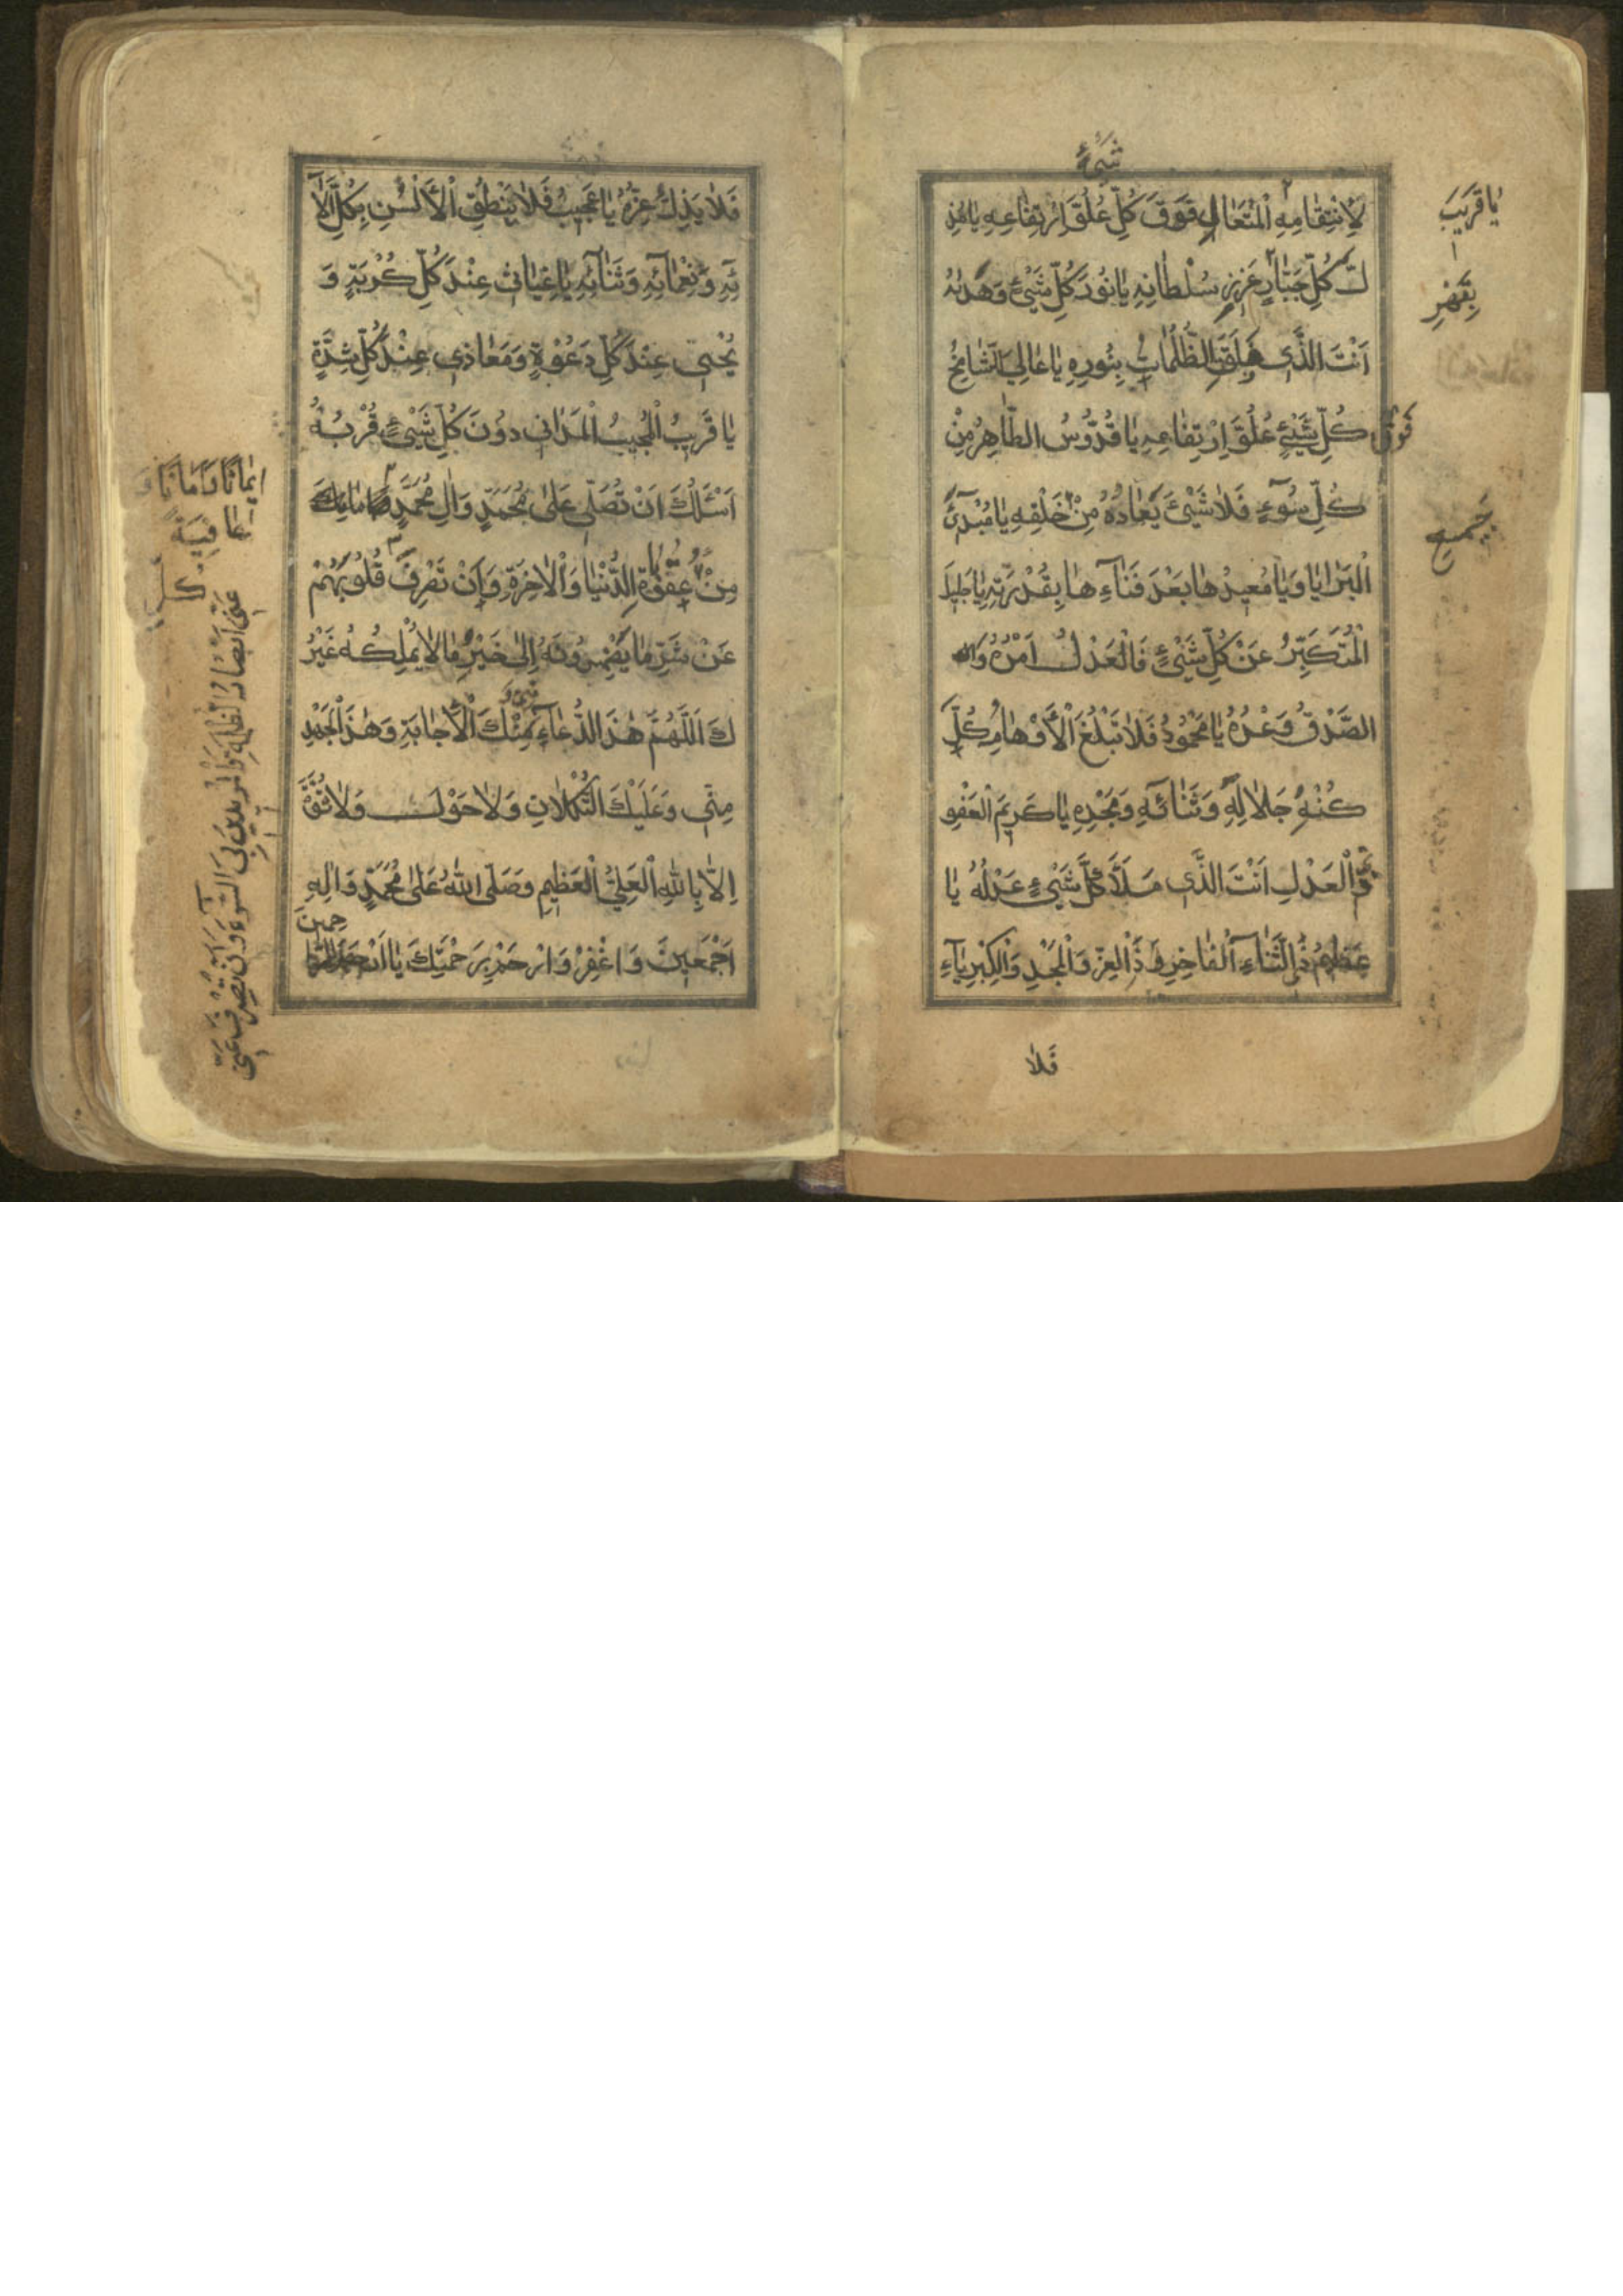 شَيْءٍ
لِانْتِقَامِهِ الْمُتَعَالِ فَوْقَ كُلِّ عُلُوِّ ارْتِفَاعِهِ يَا مُذِ
لَّ كُلِّ جَبَّارٍ عَزِيزِ سُلْطَانِهِ يَا نُورَ كُلِّ شَيْءٍ وَهُدَاهُ
اَنْتَ الَّذِي فَلَقَ الظُّلُمَاتِ بِنُورِهِ يَا عَالِي الشَّامِخُ
فَوْقَ كُلِّ شَيْءٍ عُلُوَّ اِرْتِفَاعِهِ يَا قُدُّوسُ الطَّاهِرُ مِنْ
كُلِّ سُوءٍ فَلَا شَيْءَ يُعَادُهُ مِنْ خَلْقِهِ يَا مُبْدِئَ
الْبَرَايَا وَيَا مُعِيدَهَا بَعْدَ فَنَاءِهَا بِقُدْرَتِهِ يَا جَلِيلَ
الْمُتَكَبِّرُ عَنْ كُلِّ شَيْءٍ فَالْعَدْلُ اَمْرُهُ وَ
الصِّدْقُ وَعْدُهُ يَا مَحْمُودُ فَلَا تَبْلُغُ الْأَوْهَامُ كُلَّ
كُنْهِ جَلَالِهِ وَثَنَائِهِ وَمَجْدِهِ يَا كَرِيمَ الْعَفْوِ
وَالْعَدْلِ اَنْتَ الَّذِي مَلَأَ كُلَّ شَيْءٍ عَدْلُهُ يَا
عَظِيمُ ذَا الثَّنَاءِ الْفَاخِرِ وَذَا الْعِزِّ وَالْمَجْدِ وَالْكِبْرِيَاءِ
فَلَا
يَا قَرِيبَ
بِقَهْرِ
جَمِيعِ
فَلَا يَذِلُّ عِزُّهُ يَا عَجِيبُ فَلَا يَنْطِقُ الْأَلْسُنِ بِكُلِّ آلَا
ئِهِ وَنَعْمَائِهِ وَثَنَائِهِ يَا غِيَاثِي عِنْدَ كُلِّ كُرْبَةٍ وَ
يُجِيبُنِي عِنْدَ كُلِّ دَعْوَةٍ وَمَعَاذِي عِنْدَ كُلِّ شِدَّةٍ
يَا قَرِيبُ الْمُجِيبُ الْمَدَانِي دُونَ كُلِّ شَيْءٍ قُرْبُهُ
اَسْئَلُكَ اَنْ تُصَلِّيَ عَلَى مُحَمَّدٍ وَآلِ مُحَمَّدٍ
مِنْ عُقُوبَةِ الدُّنْيَا وَالْآخِرَةِ وَاَنْ تَصْرِفَ قُلُوبَهُمْ
عَنْ شَرِّ مَا يُضْمِرُونَهُ اِلَى خَيْرِ مَا لَا يَمْلِكُهُ غَيْرُ
كَ اَللَّهُمَّ هٰذَا الدُّعَاءِ مِنِّي وَمِنْكَ الْاِجَابَةِ وَهٰذَا الْجُهْدِ
مِنِّي وَعَلَيْكَ التُّكْلَانِ وَلَا حَوْلَ وَلَا قُوَّةَ
اِلَّا بِاللهِ الْعَلِيِّ الْعَظِيمِ وَصَلَّى اللهُ عَلَى مُحَمَّدٍ وَآلِهِ
اَجْمَعِينَ وَاغْفِرْ وَارْحَمْ بِرَحْمَتِكَ يَا اَرْحَمَ الرَّا
حِمِينَ
اِيمَانًا وَاَمَانًا وَ
عَافِيَةً
عَنِّي اَبْصَارَ الظَّلَمَةِ وَالْمُرِيدِينَ بِيَ السُّوءَ وَاَنْ تَصْرِفَ عَنِّي